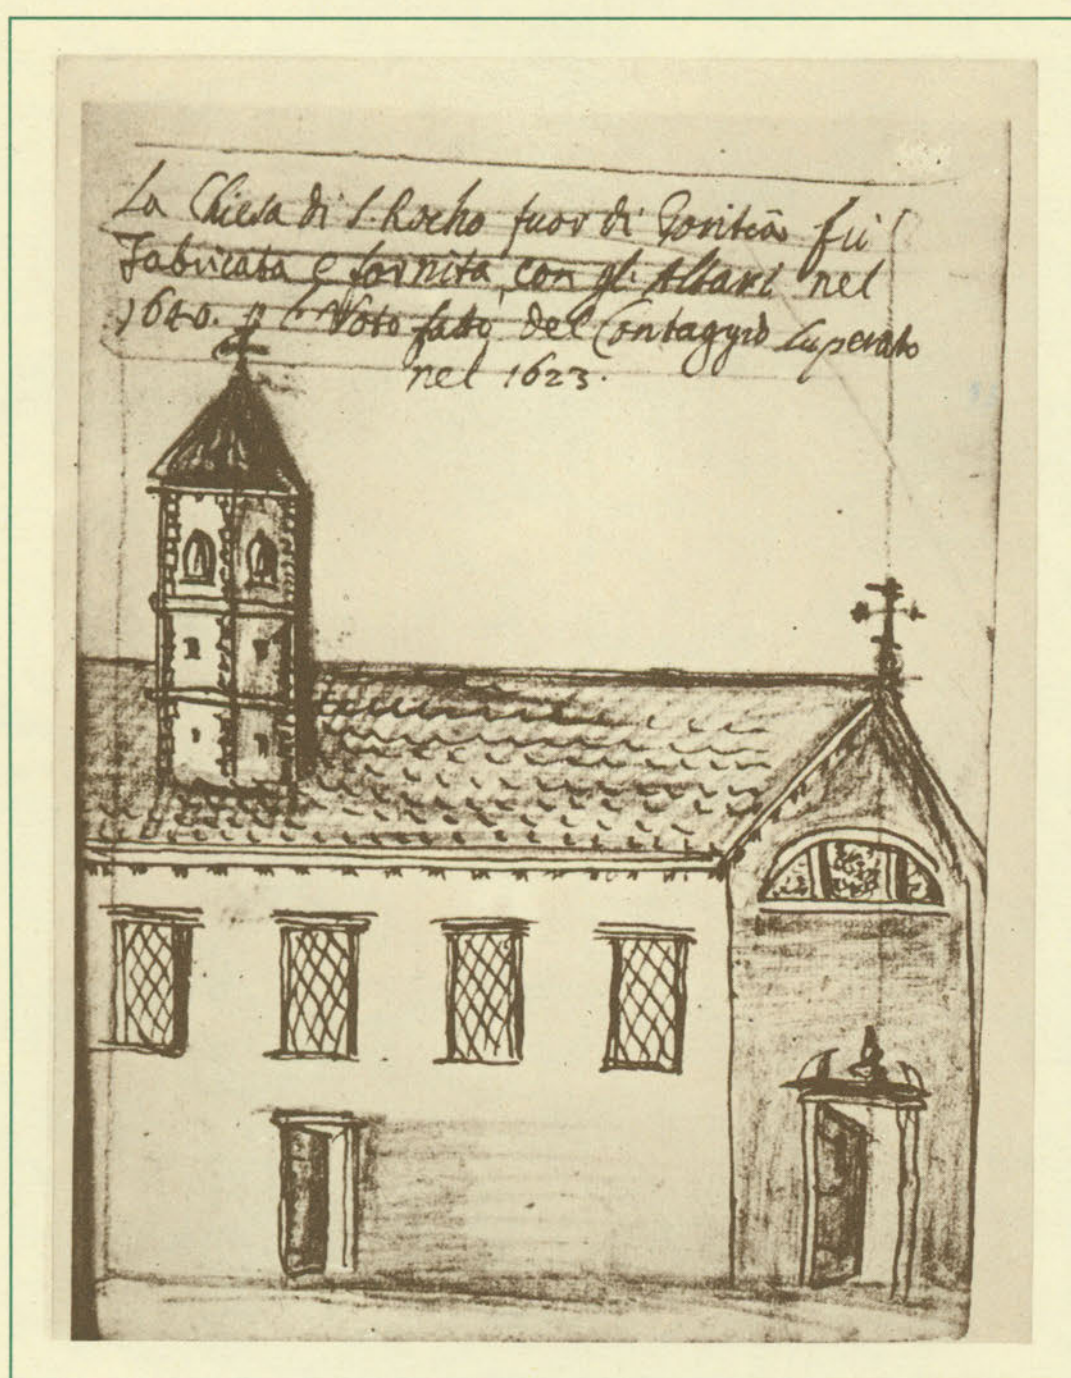 La Chiesa di S. Rocho fuor di Goritia fù
Fabricata e fornita, con gl. Altari nel
1640. p l Voto fatto del Contaggio superato
nel 1623.